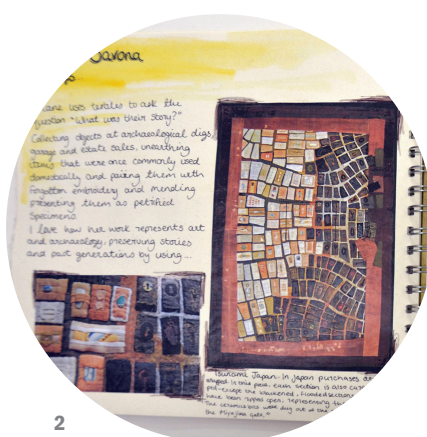 Savona
uses textiles to ask the
question "What was their story?"
Collecting objects at archaeological digs,
garage and estate sales, unearthing
items that were once commonly used
domestically and pairing them with
forgotten embroidery and mending
presenting them as petrified
specimens.
I love how her work represents art
and archaeology, preserving stories
and past generations by using...
Tsunami Japan. In Japan purchases are
wrapped. In this piece, each section is also
except the blackened, flooded section
have been ripped open, representing
The ceramic bits were dug out at the
the Miyajima Gate."
2